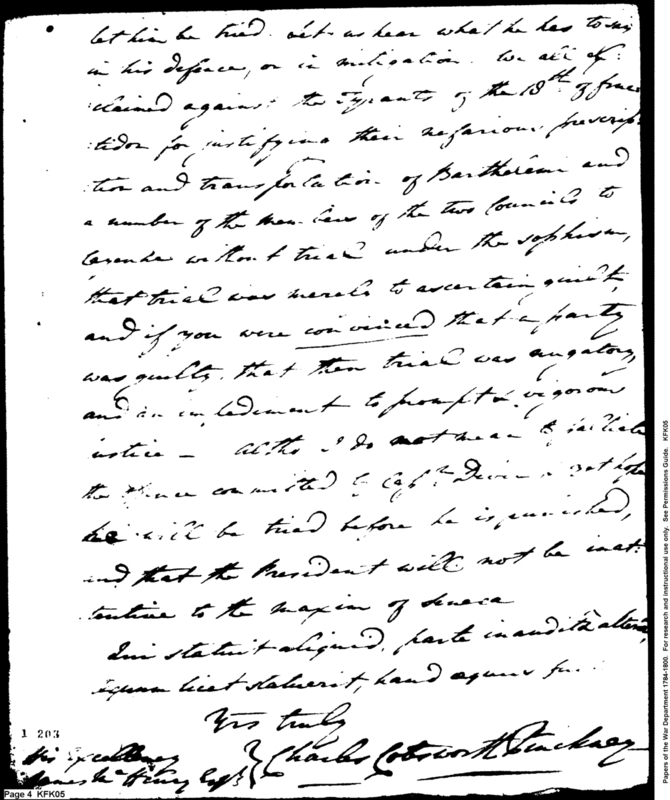 let him be tried. let us hear what he has to say
in his defence, or in mitigation. We all ex:
:claimed against the Tyrants of the 18th of fruc
:tidor for justifying their nefarious proscrip:
:tion and transportation of Barthelemi and
a number of the members of the two Councils to
Cayenne without trial under the sophism,
that trial was merely to ascertain guilt,
and if you were convinced that a party
was guilty, that then trial was nugatory,
and an impediment to prompt & vigorous
justice — Altho I do not mean to palliate
the offence committed by Capt. I yet hope
he will be tried before he is punished,
and that the President will not be inat:
:tentive to the maxim of Seneca
Qui statuit aliquid, parte inaudita altera,
æquum licet statuerit, haud æquus
Yrs truly
Charles Cotesworth Pinckney
His Excellency
James McHenry Esqr.
1 203
Page 4 KFK05
Papers of the War Department 1784-1800. For research and instructional use only. See Permissions Guide. KFK05